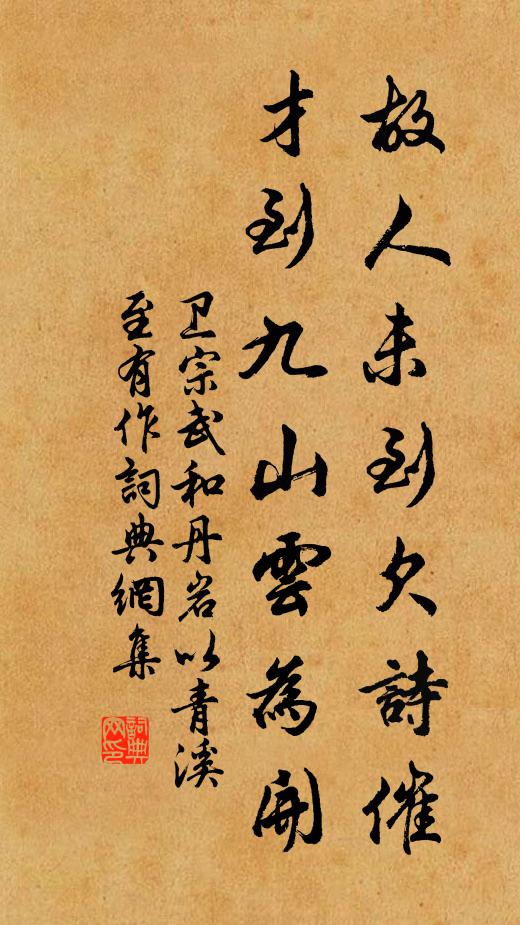 故人未到欠詩催
才到九山雲為開
卫宗武和丹岩以青溪
至有作詞典網集
詞典
网印